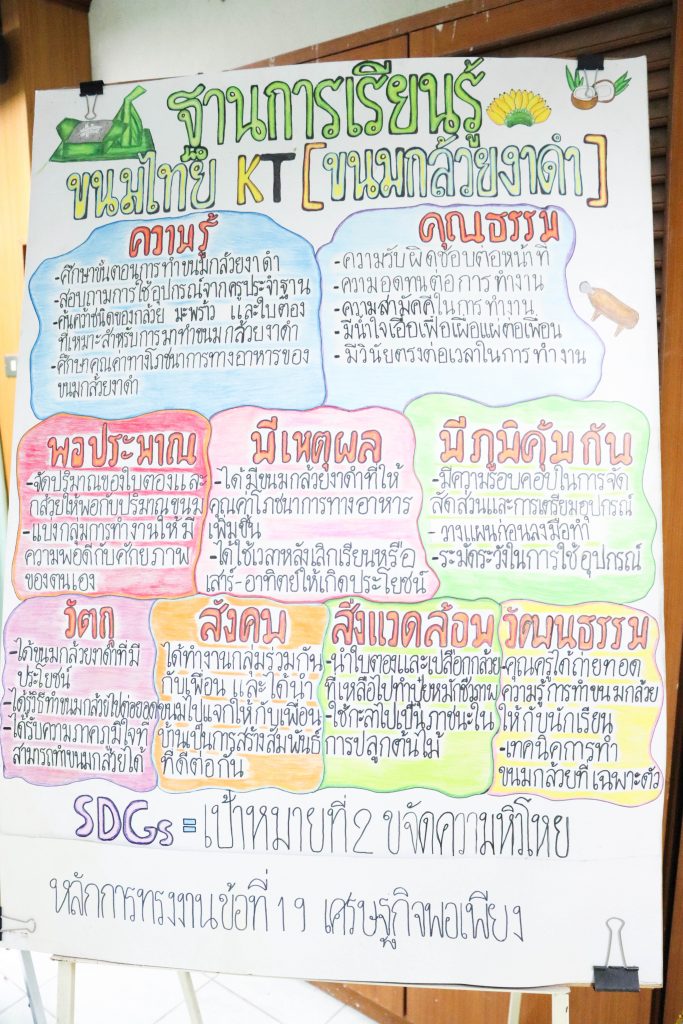 ฐานการเรียนรู้
ขนมไทย KT [ขนมกล้วยงาดำ]
ความรู้
-ศึกษาขั้นตอนการทำขนมกล้วยงาดำ
-สอบถามการใช้อุปกรณ์จากครูประจำฐาน
-ค้นคว้าชนิดของกล้วย มะพร้าว และใบตอง
ที่เหมาะสำหรับการมาทำขนมกล้วยงาดำ
-ศึกษาคุณค่าทางโภชนาการทางอาหารของ
ขนมกล้วยงาดำ
คุณธรรม
-ความรับผิดชอบต่อหน้าที่
-ความอดทนต่อการทำงาน
-ความสามัคคีในการทำงาน
-มีน้ำใจเอื้อเฟื้อเผื่อแผ่ต่อเพื่อน
-มีวินัยตรงต่อเวลาในการทำงาน
พอประมาณ
-จัดปริมาณของใบตองและ
กล้วยให้พอกับปริมาณขนม
-แบ่งกลุ่มการทำงานให้มี
ความพอดีกับศักยภาพ
ของตนเอง
มีเหตุผล
-ได้มีขนมกล้วยงาดำที่ให้
คุณค่าโภชนาการทางอาหาร
เพิ่มขึ้น
-ได้ใช้เวลาหลังเลิกเรียนหรือ
เสาร์-อาทิตย์ให้เกิดประโยชน์
มีภูมิคุ้มกัน
-มีความรอบคอบในการจัด
สัดส่วนและการเตรียมอุปกรณ์
-วางแผนก่อนลงมือทำ
-ระมัดระวังในการใช้อุปกรณ์
วัตถุ
-ได้ขนมกล้วยงาดำที่มี
ประโยชน์
-ได้รู้วิธีทำขนมกล้วยไปต่อยอด
-ได้รับความภาคภูมิใจที่
สามารถทำขนมกล้วยได้
สังคม
ได้ทำงานกลุ่มร่วมกัน
กับเพื่อน และได้นำ
ขนมไปแจกให้กับเพื่อน
บ้านเป็นการสร้างสัมพันธ์
ที่ดีต่อกัน
สิ่งแวดล้อม
-นำใบตองและเปลือกกล้วย
ที่เหลือไปทำปุ๋ยหมักชีวภาพ
-ใช้กะลาไปเป็นภาชนะใน
การปลูกต้นไม้
วัฒนธรรม
-คุณครูได้ถ่ายทอด
ความรู้การทำขนมกล้วย
ให้กับนักเรียน
-เทคนิคการทำ
ขนมกล้วยที่เฉพาะตัว
SDGs = เป้าหมายที่ 2 ขจัดความหิวโหย
หลักการทรงงานข้อที่ 19 เศรษฐกิจพอเพียง